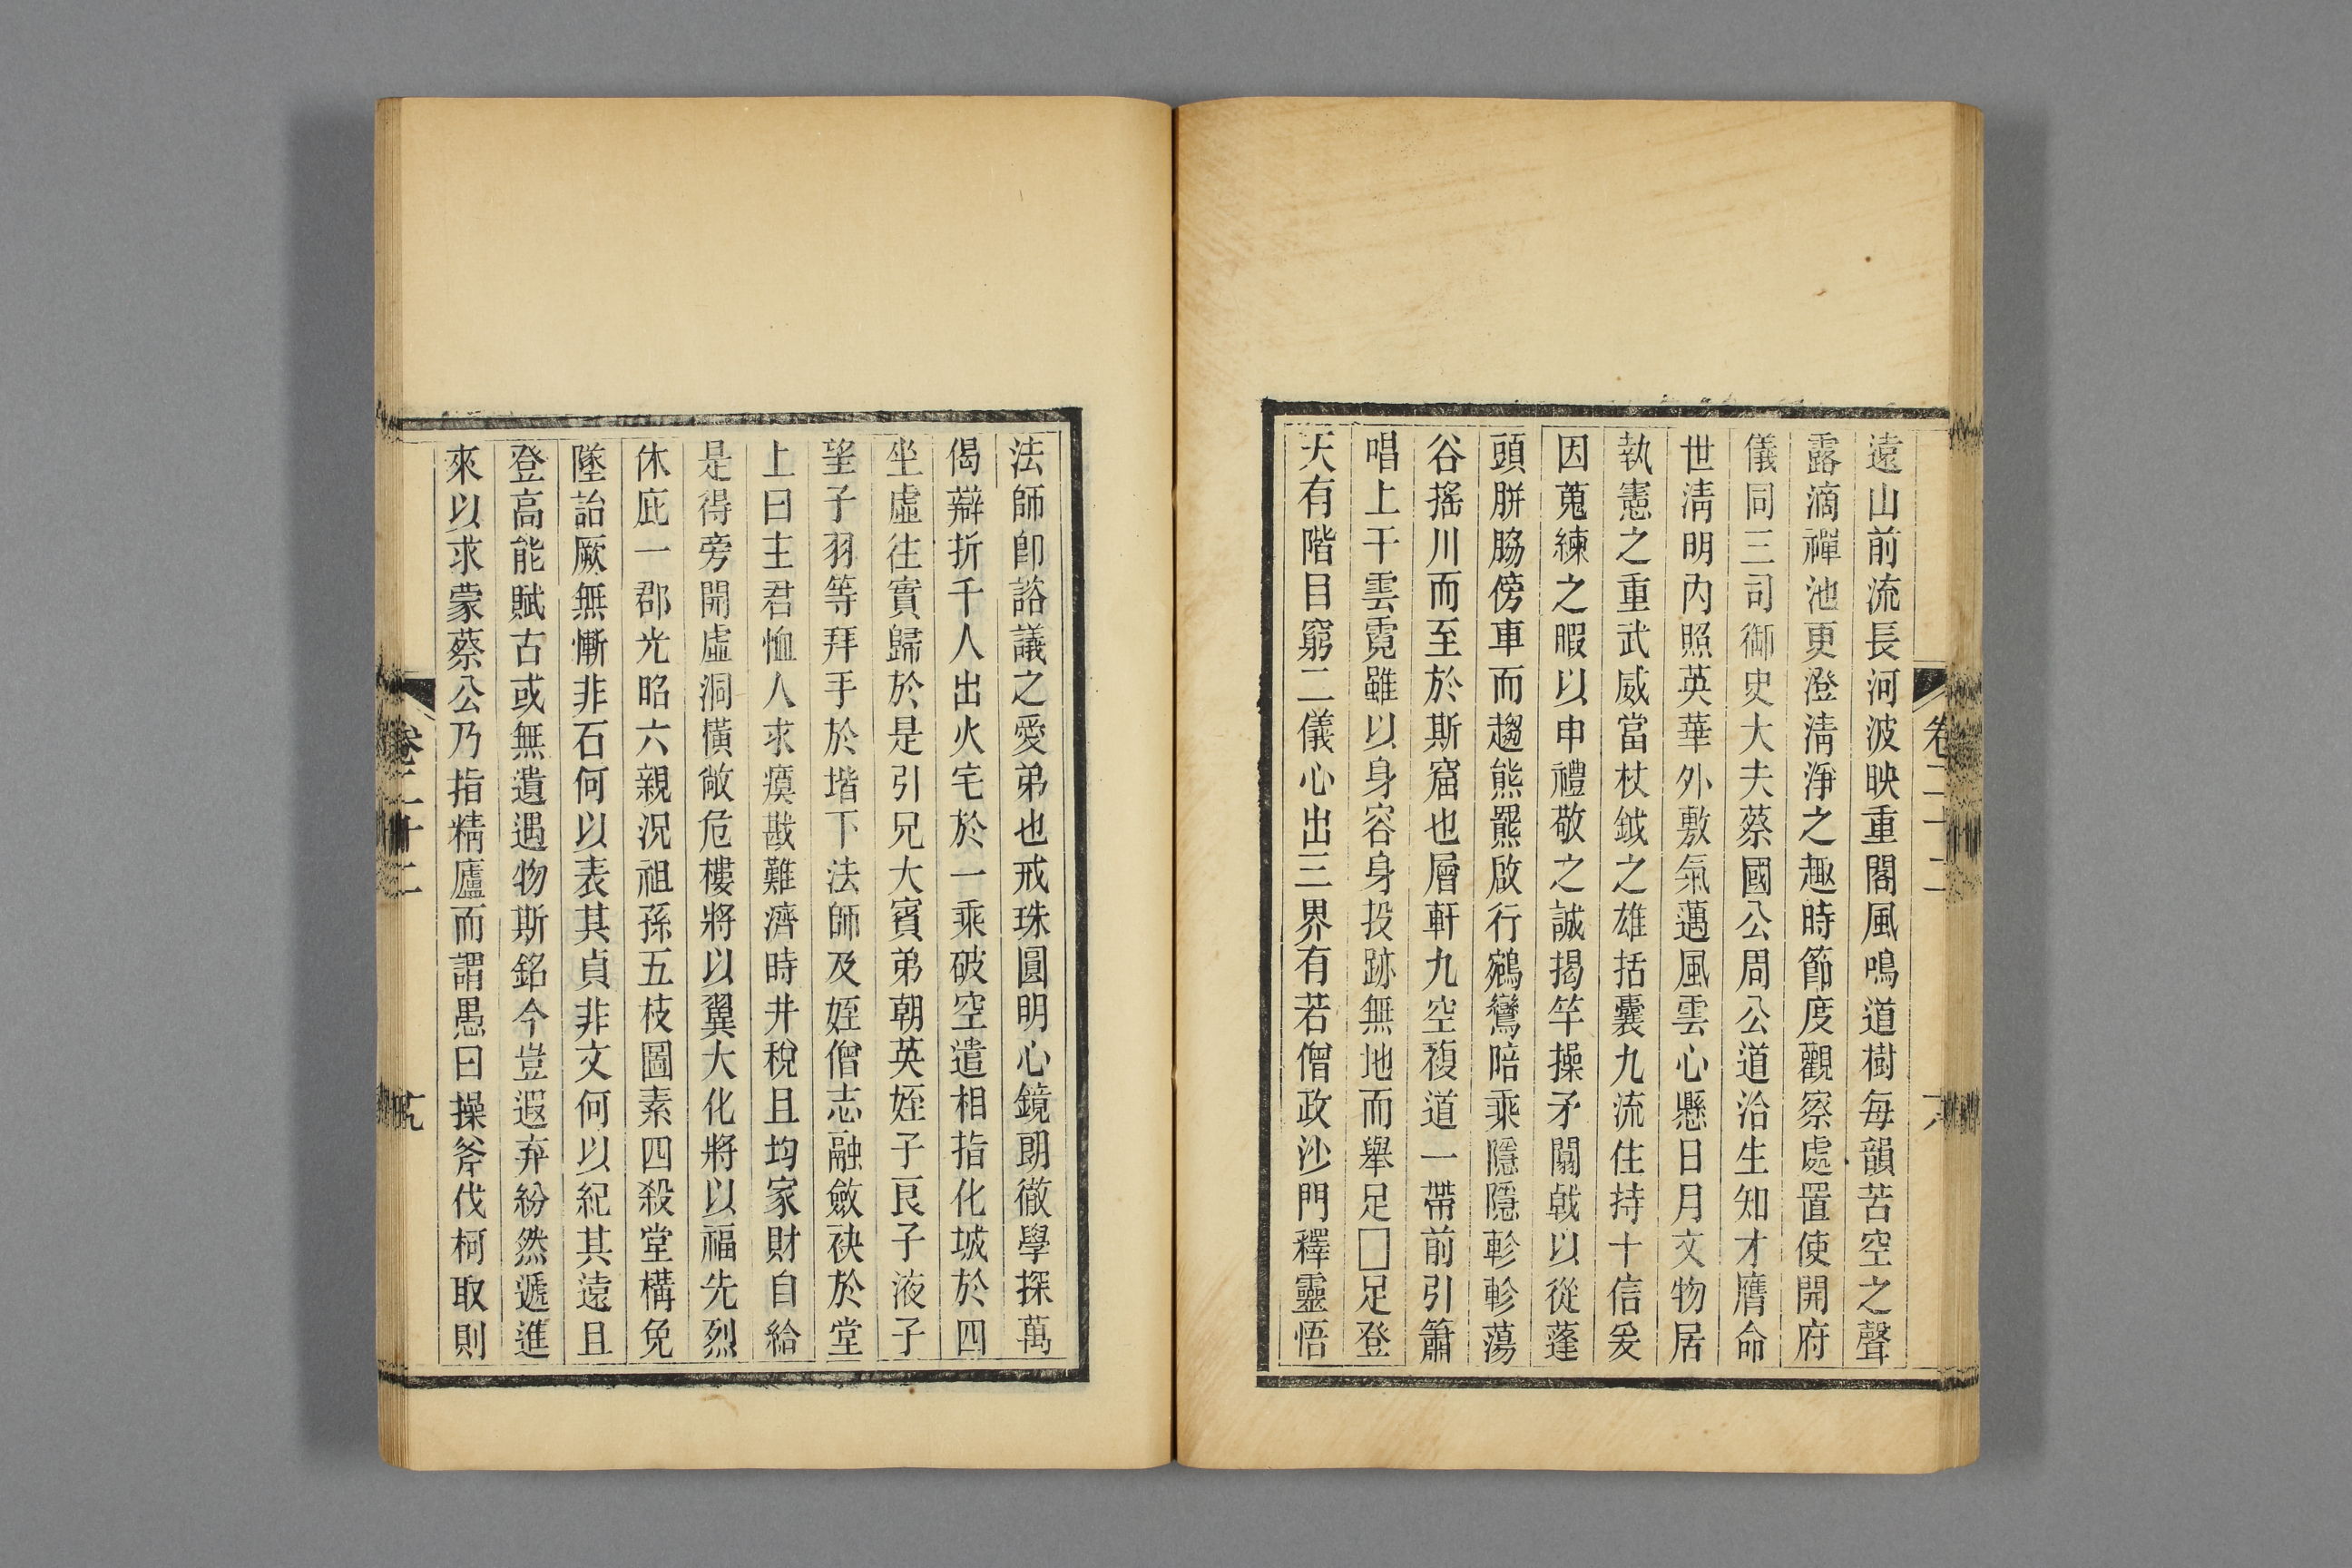 遠山前流長河波映重閣風鳴道樹每韻苦空之聲
露滴禪池更澄清淨之趣時節度觀察處置使開府
儀同三司御史大夫蔡國公周公道洽生知才膺命
世清明內照英華外敷氣邁風雲心懸日月文物居
執憲之重武威當杖鉞之雄括囊九流住持十信爰
因蒐練之暇以申禮敬之誠揭竿操矛闟戟以從蓬
頭胼脇傍車而趨熊羆啟行鵷鸞陪乘隱隱軫軫蕩
谷搖川而至於斯窟也層軒九空複道一帶前引簫
唱上干雲霓雖以身容身投跡無地而舉足□足登
天有階目窮二儀心出三界有若僧政沙門釋靈悟
卷二十二
法師卽諮議之愛弟也戒珠圓明心鏡朗徹學探萬
偈辯折千人出火宅於一乘破空遣相指化城於四
坐虛往實歸於是引兄大賓弟朝英姪子良子液子
望子羽等拜手於堦下法師及姪僧志融斂袂於堂
上曰主君恤人求瘼戡難濟時井稅且均家財自給
是得旁開虛洞橫敞危樓將以翼大化將以福先烈
休庇一郡光昭六親況祖孫五枝圖素四殺堂構免
墜詒厥無慚非石何以表其貞非文何以紀其遠且
登高能賦古或無遺遇物斯銘今豈遐弃紛然遞進
來以求蒙蔡公乃指精廬而謂愚曰操斧伐柯取則
卷二十二